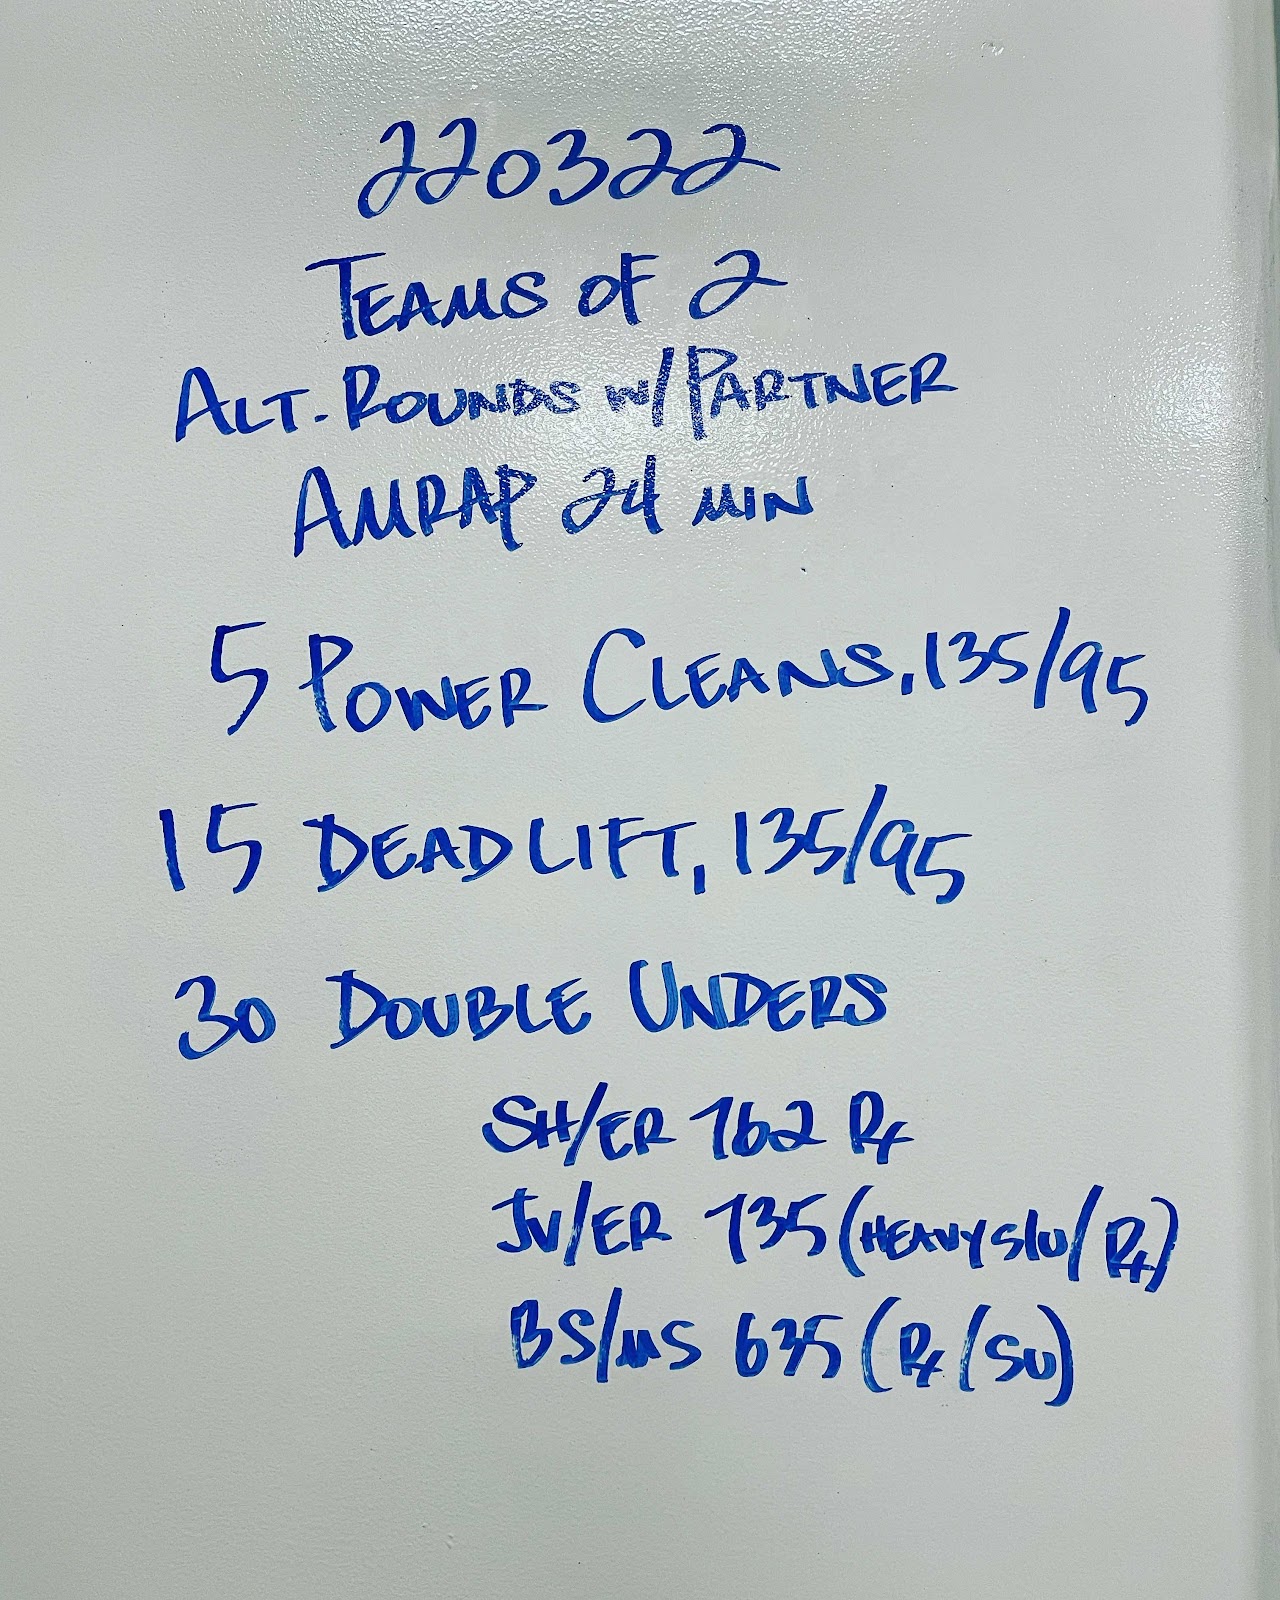 220322
TEAMS OF 2
ALT. ROUNDS W/ PARTNER
AMRAP 24 MIN
5 POWER CLEANS, 135/95
15 DEADLIFT, 135/95
30 DOUBLE UNDERS
SH/ER 762 Rx
JV/ER 735 (HEAVY S/U / Rx)
BS/MS 635 (Rx/SU)